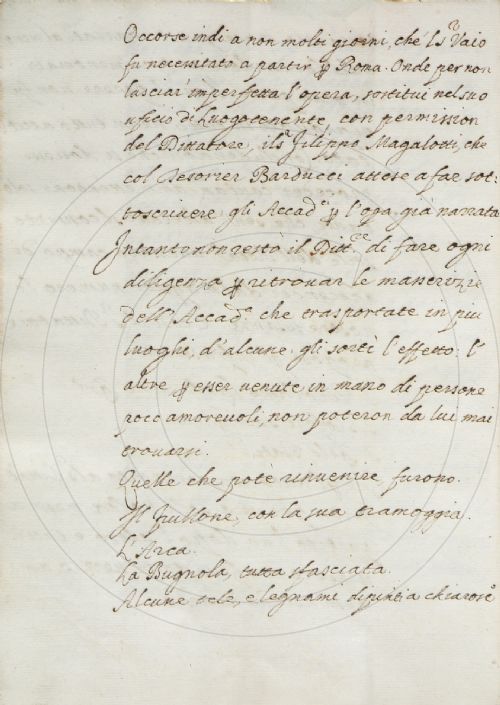 Occorse indi a non molti giorni, ché l S.r Vaio
fu necessitato a partir p Roma. Onde per non
lasciar imperfetta l'opera, sostituì nel suo
uficio di Luogotenente, con permission
del Dittatore, il S.r Filippo Magalotti, che
col Tesorier Barducci attese a far sot:
toscrivere gli Accad.ci p l'opa già narrata
Intanto non restò il Ditt.re di fare ogni
diligenza p ritrovar le masserizie
dell'Accad.a che trasportate in piu
luoghi, d'alcune gli sortì l'effetto: l'
altre p esser venute in mano di persone
poco amorevoli, non poteron da lui mai
trovarsi.
Quelle che potè rinvenire, furono.
Il Frullone, con la sua tramoggia.
L'Arca.
La Bugnola, tutta sfasciata.
Alcune tele, e legnami dipinti a chiaros.o